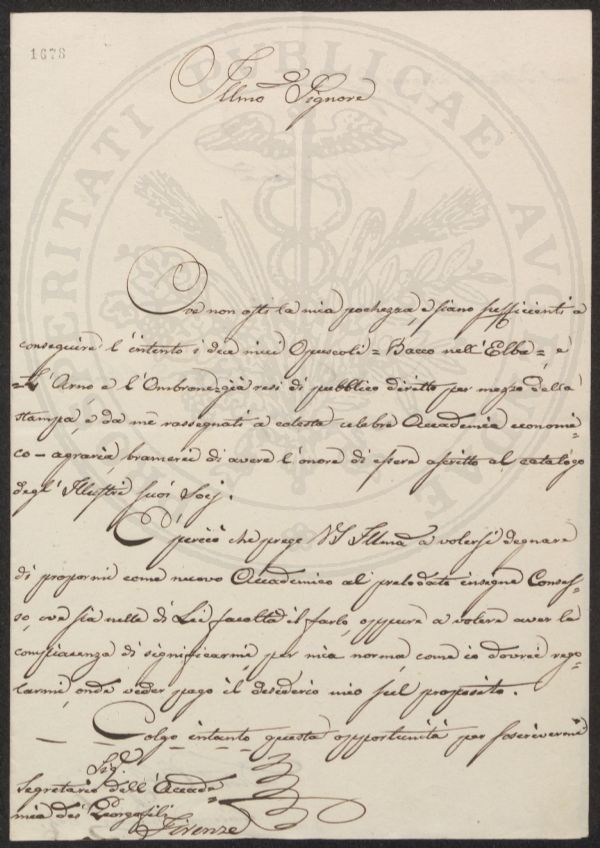 1678
Illmo Signore
Ove non osti la mia pochezza, e siano sufficienti a
conseguire l'intento i due miei Opuscoli = Bacco nell'Elba =, e
= L'Arno e l'Ombrone = già resi di pubblico diritto per mezzo della
stampa, e da me rassegnati a cotesta celebre Accademia economi=
co-agraria bramerei di avere l'onore di essere ascritto al catalogo
degl'Illustri suoi Socj.
E' perciò che prego VS Illma a volersi degnare
di propormi come nuovo Accademico al prelodato insigne Conses=
so, ove sia nelle di Lei facoltà il farlo, oppure a volere aver la
compiacenza di significarmi, per mia norma, come io dovrei rego=
larmi, onde veder pago il desiderio mio sul proposito.
Colgo intanto questa opportunità per soscrivermi
Sig.
Segretario dell'Accade=
mia dei Georgofili
Firenze
VERITATI PUBLICAE